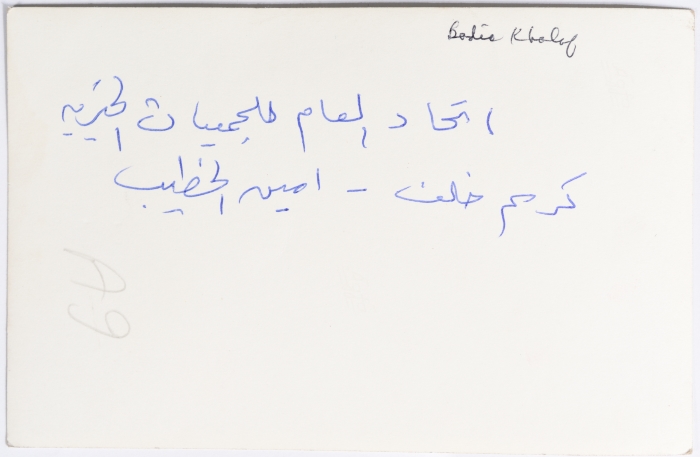 Badia Khalaf
اتحاد العام للجمعيات الخيريه
كريم خلف - امين الخطيب